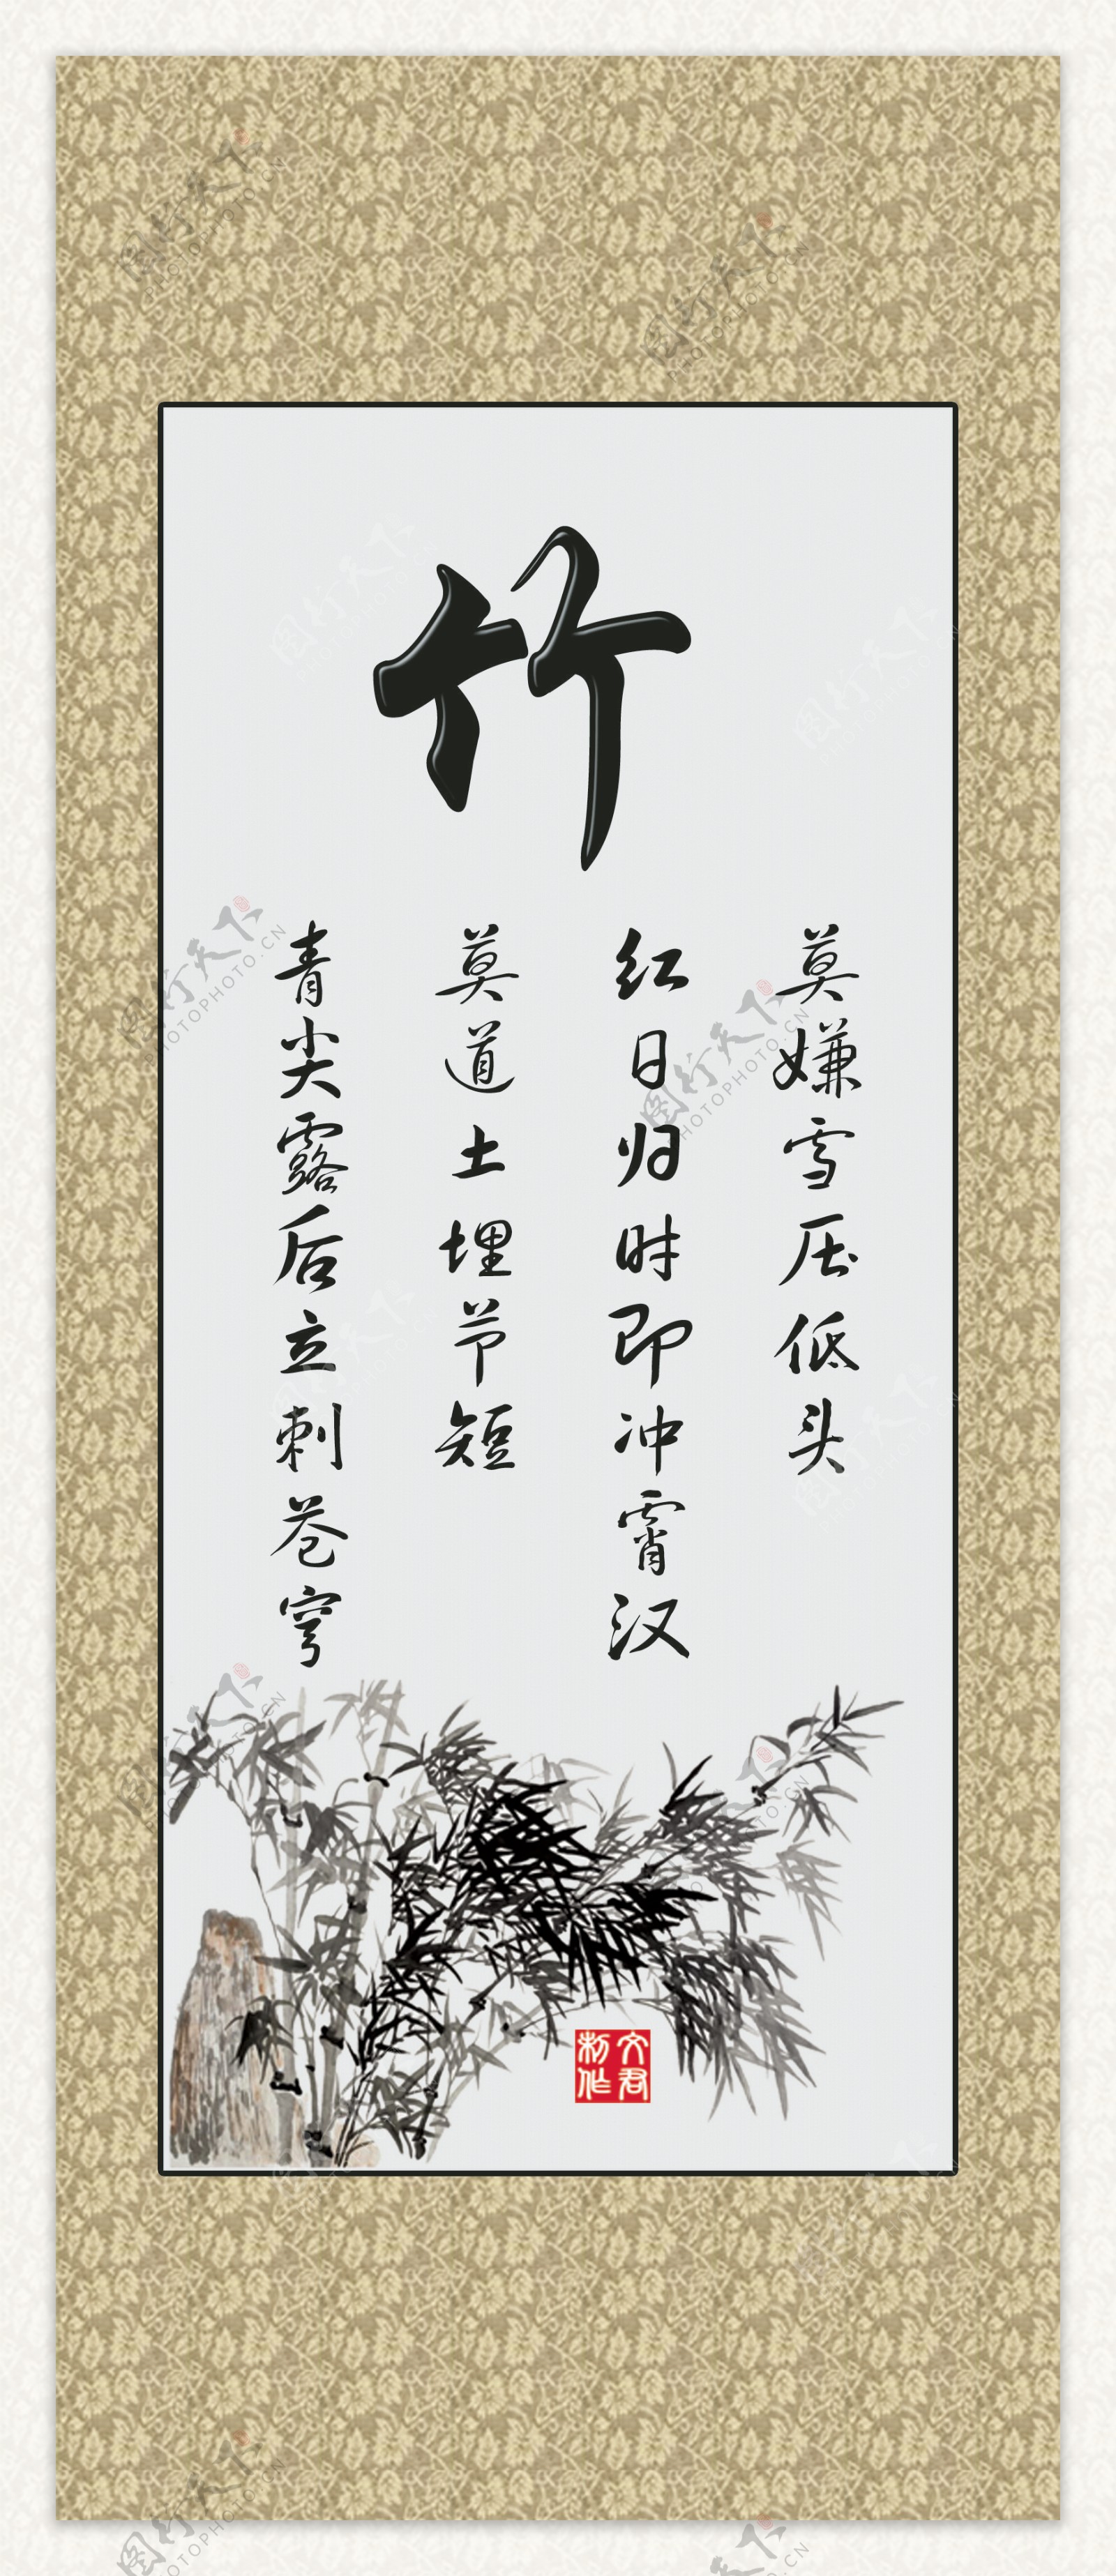 竹
莫嫌雪压低头
红日归时即冲霄汉
莫道土埋节短
青尖露后立刺苍穹
文君
制作
图行天下
PHOTOPHOTO.CN